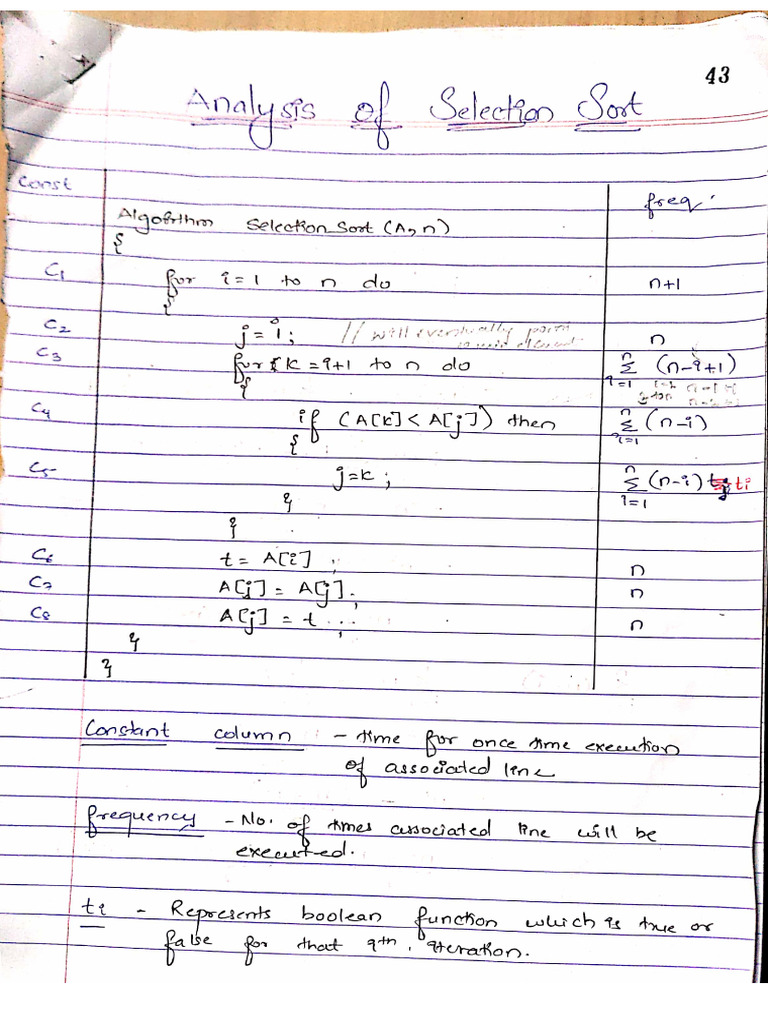 43
Analysis of Selection Sort
Const freq.
Algorithm SelectionSort (A, n)
{
C1 for i = 1 to n do n+1
{
C2 j = i; // will eventually point n
C3 for k = i+1 to n do n Σ i=1 (n-i+1)
{
C4 if (A[k] < A[j]) then n Σ i=1 (n-i)
{
C5 j = k; n Σ i=1 (n-i) ti
}
}
C6 t = A[i]; n
C7 A[j] = A[j]; n
C8 A[j] = t; n
}
}
Constant column :- time for once time execution
of associated line
frequency - No. of times associated line will be
executed.
ti - Represents boolean function which is true or
false for that ith iteration.